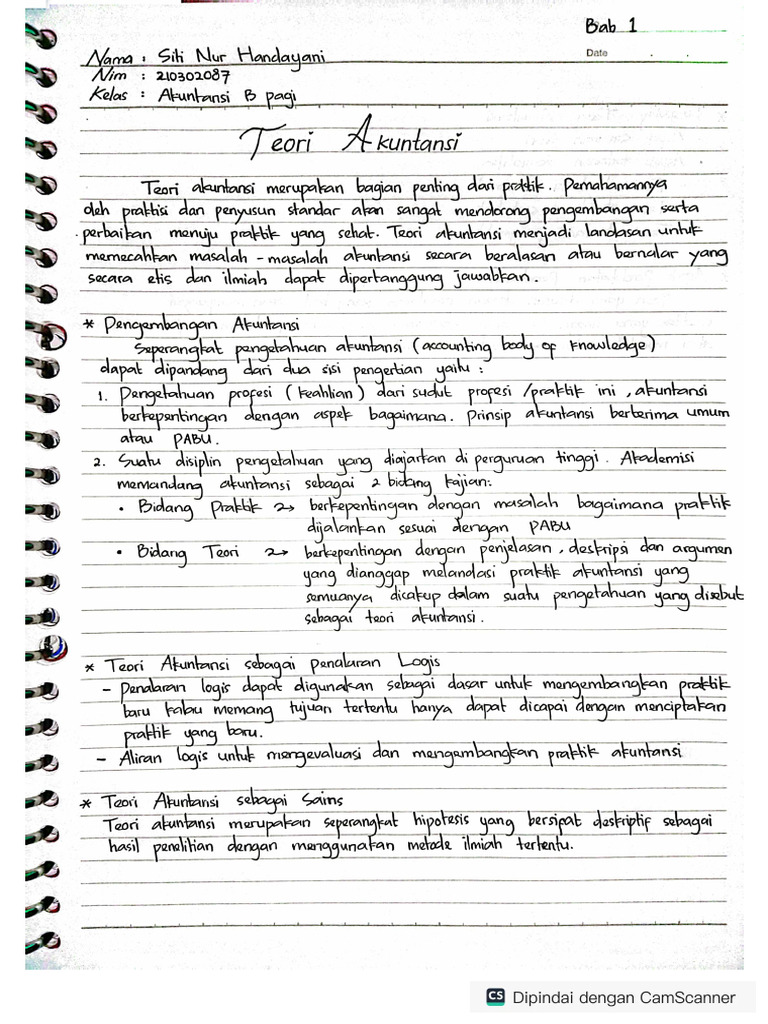 Bab 1
Date . .
Nama : Siti Nur Handayani
Nim : 210302087
Kelas : Akuntansi B pagi
Teori Akuntansi
Teori akuntansi merupakan bagian penting dari praktik. Pemahamannya
oleh praktisi dan penyusun standar akan sangat mendorong pengembangan serta
perbaikan menuju praktik yang sehat. Teori akuntansi menjadi landasan untuk
memecahkan masalah - masalah akuntansi secara beralasan atau bernalar yang
secara etis dan ilmiah dapat dipertanggung jawabkan.
* Pengembangan Akuntansi
Seperangkat pengetahuan akuntansi (accounting body of knowledge)
dapat dipandang dari dua sisi pengertian yaitu :
1. Pengetahuan profesi (keahlian) dari sudut profesi /praktik ini , akuntansi
berkepentingan dengan aspek bagaimana. Prinsip akuntansi berterima umum
atau PABU.
2. Suatu disiplin pengetahuan yang diajarkan di perguruan tinggi. Akademisi
memandang akuntansi sebagai 2 bidang kajian:
• Bidang Praktik → berkepentingan dengan masalah bagaimana praktik
dijalankan sesuai dengan PABU
• Bidang Teori → berkepentingan dengan penjelasan, deskripsi dan argumen
yang dianggap melandasi praktik akuntansi yang
semuanya dicakup dalam suatu pengetahuan yang disebut
sebagai teori akuntansi.
* Teori Akuntansi sebagai penalaran Logis
- Penalaran logis dapat digunakan sebagai dasar untuk mengembangkan praktik
baru kalau memang tujuan tertentu hanya dapat dicapai dengan menciptakan
praktik yang baru.
- Aliran logis untuk mengevaluasi dan mengembangkan praktik akuntansi
* Teori Akuntansi sebagai Sains
Teori akuntansi merupakan seperangkat hipotesis yang bersipat deskriptif sebagai
hasil penelitian dengan menggunakan metode ilmiah tertentu.
CS Dipindai dengan CamScanner